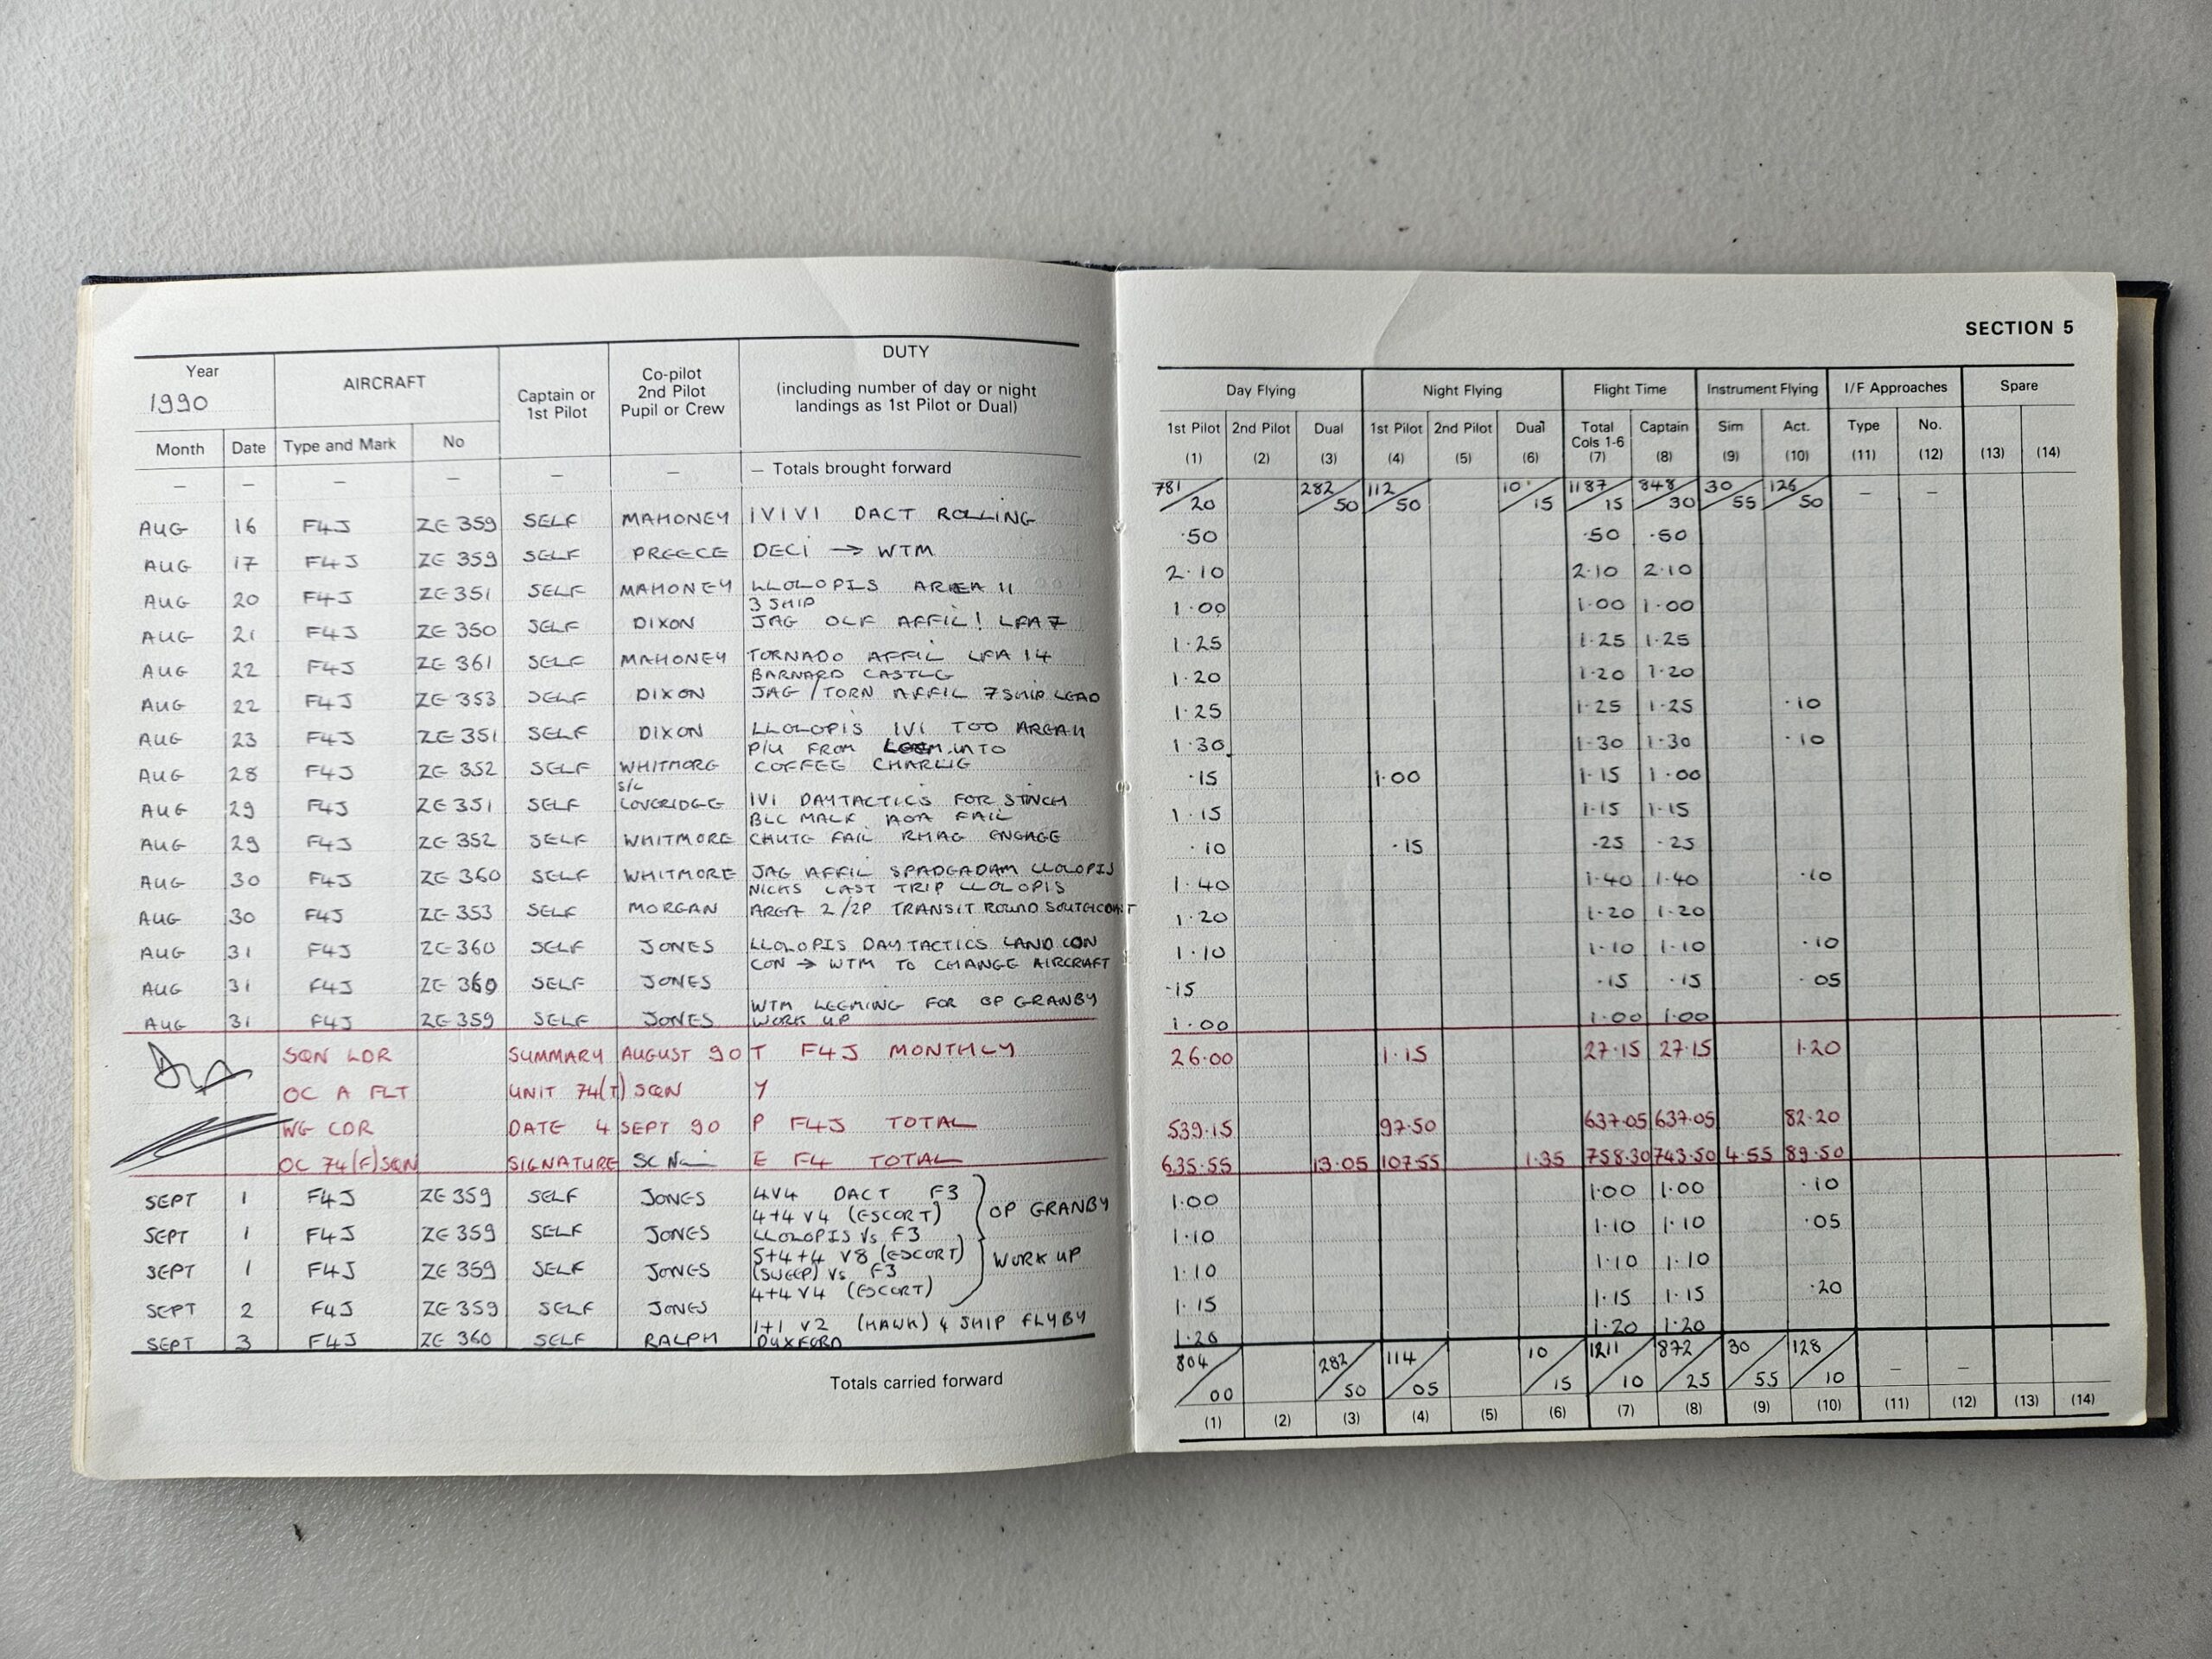 SECTION 5
Year 1990 AIRCRAFT Captain or 1st Pilot Co-pilot 2nd Pilot Pupil or Crew DUTY (including number of day or night landings as 1st Pilot or Dual) Day Flying Night Flying Flight Time Instrument Flying I/F Approaches Spare
Month Date Type and Mark No 1st Pilot 2nd Pilot Dual 1st Pilot 2nd Pilot Dual Total Cols 1-6 Captain Sim Act. Type No.
(1) (2) (3) (4) (5) (6) (7) (8) (9) (10) (11) (12) (13) (14)
— — — — — — — Totals brought forward 781/20 282/50 112/50 10/15 1187/15 848/30 30/55 126/50 — —
AUG 16 F4J ZE 359 SELF MAHONEY 1V1V1 DACT ROLLING ·50 ·50 ·50
AUG 17 F4J ZE 359 SELF PREECE DECI → WTM 2·10 2·10 2·10
AUG 20 F4J ZE 351 SELF MAHONEY LLOLOPIS AREA 11 1·00 1·00 1·00
3 SHIP
AUG 21 F4J ZE 350 SELF DIXON JAG OLF AFFIL! LFA7 1·25 1·25 1·25
AUG 22 F4J ZE 361 SELF MAHONEY TORNADO AFFIL LFA 14 1·20 1·20 1·20
BARNARD CASTLE
AUG 22 F4J ZE 353 SELF DIXON JAG / TORN AFFIL 7 SHIP LEAD 1·25 1·25 1·25 ·10
AUG 23 F4J ZE 351 SELF DIXON LLOLOPIS 1V1 TOO AREA 11 1·30 1·30 1·30 ·10
P/U FROM INTO
AUG 28 F4J ZE 352 SELF WHITMORE COFFEE CHARLIE ·15 1·00 1·15 1·00
AUG 29 F4J ZE 351 SELF S/L LOVERIDGE 1V1 DAYTACTICS FOR 1·15 1·15 1·15
BLC MALF AOA FAIL
AUG 29 F4J ZE 352 SELF WHITMORE CHUTE FAIL RHAG ENGAGE ·10 ·15 ·25 ·25
AUG 30 F4J ZE 360 SELF WHITMORE JAG AFFIL SPADEADAM LLOLOPIS 1·40 1·40 1·40 ·10
NICKS LAST TRIP LLOLOPIS
AUG 30 F4J ZE 353 SELF MORGAN AREA 2/2P TRANSIT ROUND SOUTH COAST 1·20 1·20 1·20
AUG 31 F4J ZE 360 SELF JONES LLOLOPIS DAY TACTICS LAND CON 1·10 1·10 1·10 ·10
CON → WTM TO CHANGE AIRCRAFT
AUG 31 F4J ZE 360 SELF JONES ·15 ·15 ·15 ·05
WTM LEEMING FOR OP GRANBY
AUG 31 F4J ZE 359 SELF JONES WORK UP 1·00 1·00 1·00
SQN LDR SUMMARY AUGUST 90 T F4J MONTHLY 26·00 1·15 27·15 27·15 1·20
OC A FLT UNIT 74(T) SQN Y
WG CDR DATE 4 SEPT 90 P F4J TOTAL 539·15 97·50 637·05 637·05 82·20
OC 74(F) SQN SIGNATURE E F4 TOTAL 635·55 13·05 107·55 1·35 758·30 743·50 4·55 89·50
SEPT 1 F4J ZE 359 SELF JONES 4V4 DACT F3 1·00 1·00 1·00 ·10
4+4 V4 (ESCORT) OP GRANBY
SEPT 1 F4J ZE 359 SELF JONES LLOLOPIS Vs F3 1·10 1·10 1·10 ·05
5+4+4 V8 (ESCORT) WORK UP
SEPT 1 F4J ZE 359 SELF JONES (SWEEP) Vs F3 1·10 1·10 1·10
4+4 V4 (ESCORT)
SEPT 2 F4J ZE 359 SELF JONES 1·15 1·15 1·15 ·20
1+1 V2 (HAWK) 4 SHIP FLYBY
SEPT 3 F4J ZE 360 SELF RALPH DUXFORD 1·20 1·20 1·20
Totals carried forward 804/00 282/50 114/05 10/15 1211/10 872/25 30/55 128/10 — —
(1) (2) (3) (4) (5) (6) (7) (8) (9) (10) (11) (12) (13) (14)